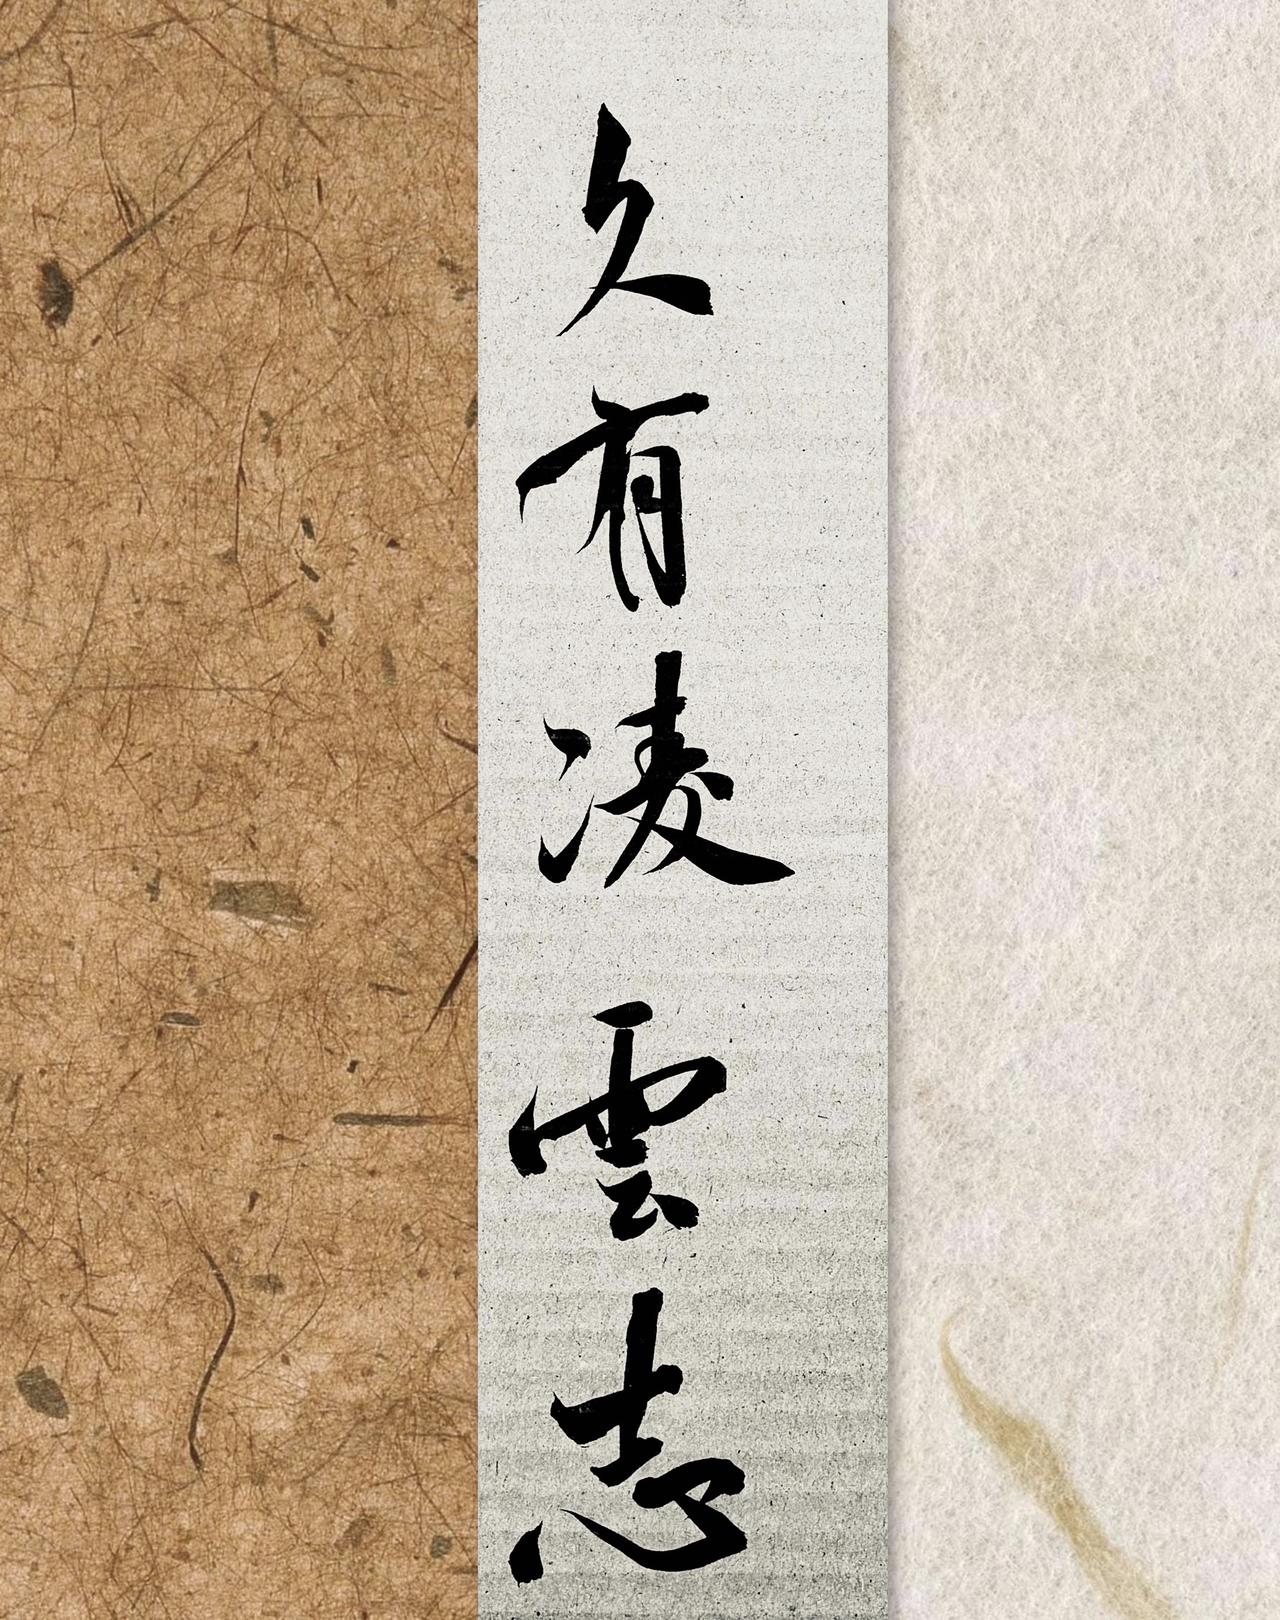 久有凌雲志